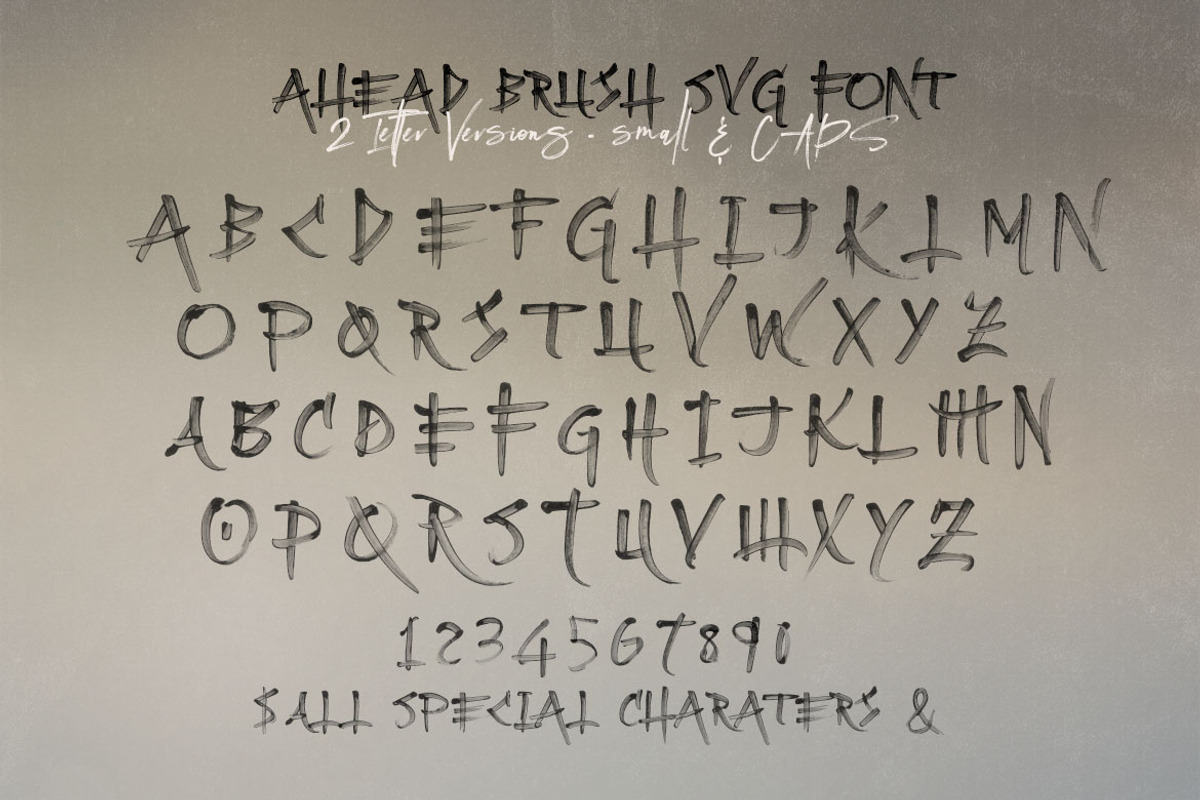 AHEAD BRUSH SVG FONT
2 letter Versions - small & CAPS
A B C D E F G H I J K L M N
O P Q R S T U V W X Y Z
A B C D E F G H I J K L M N
O P Q R S T U V W X Y Z
1 2 3 4 5 6 7 8 9 0
$ALL SPECIAL CHARATERS &